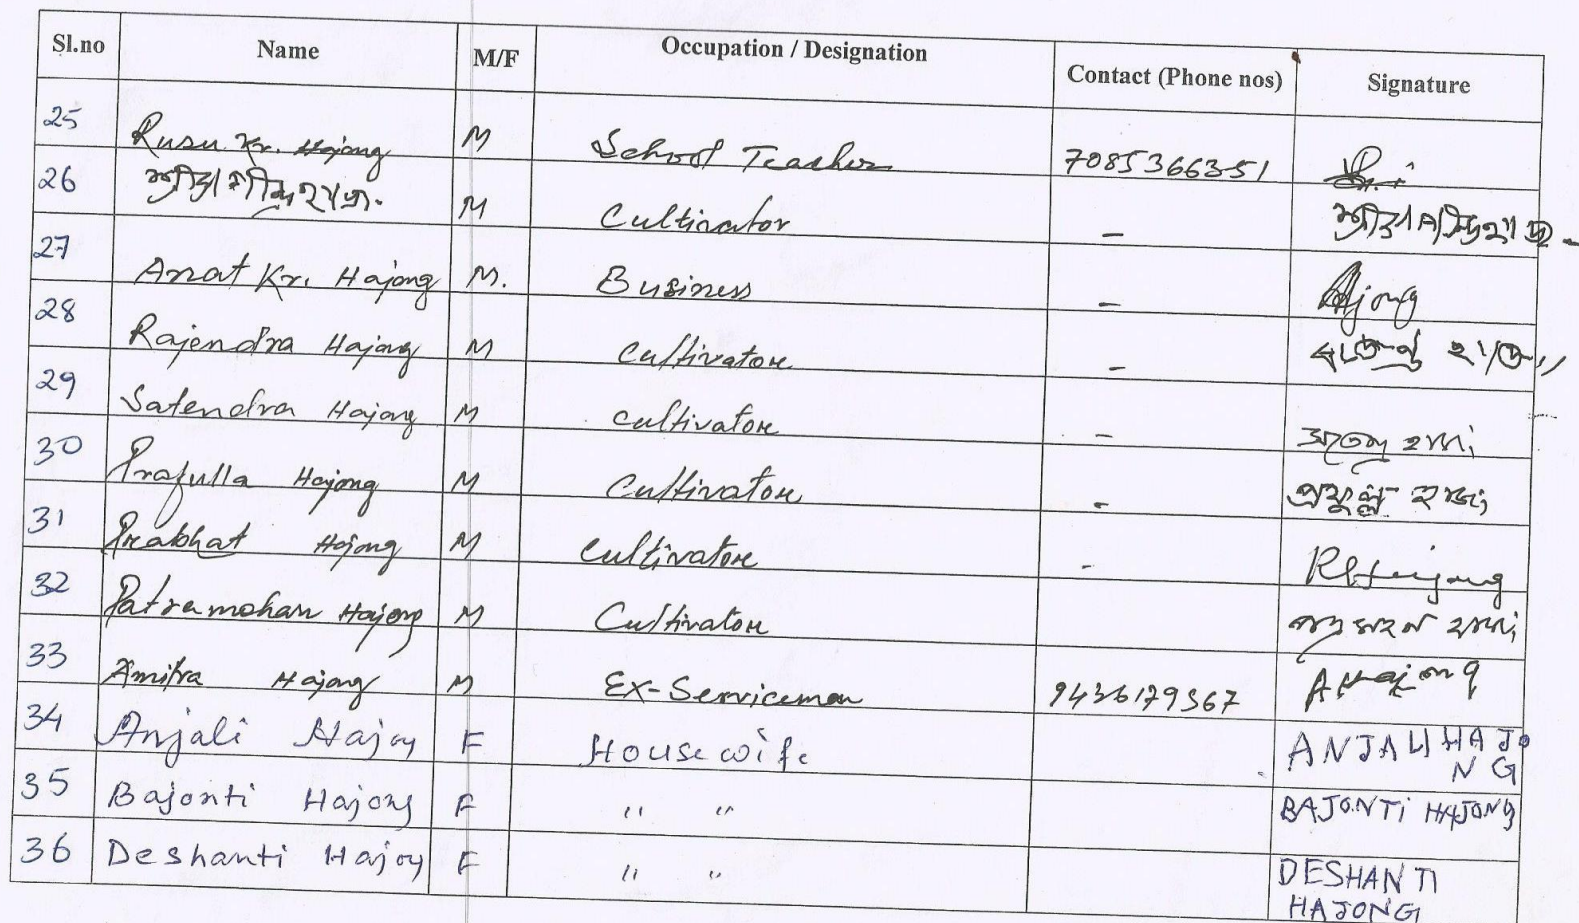 Sl.no Name M/F Occupation / Designation Contact (Phone nos) Signature
25 Rusu Kr. Hajong M School Teacher 7085366351
26 M Cultivator –
27 Anat Kr. Hajong M. Business – Hjong
28 Rajendra Hajong M Cultivator –
29 Satendra Hajong M Cultivator –
30 Prafulla Hajong M Cultivator - প্রফুল্ল হাজং
31 Prabhat Hajong M Cultivator -
32 Patramohan Hajong M Cultivator
33 Amitra Hajong M Ex-Serviceman 9436179367 A Hajong
34 Anjali Hajong F House wife ANJALI HAJO
NG
35 Bajonti Hajong F " " BAJONTI HAJONG
36 Deshanti Hajong F " " DESHANTI
HAJONG